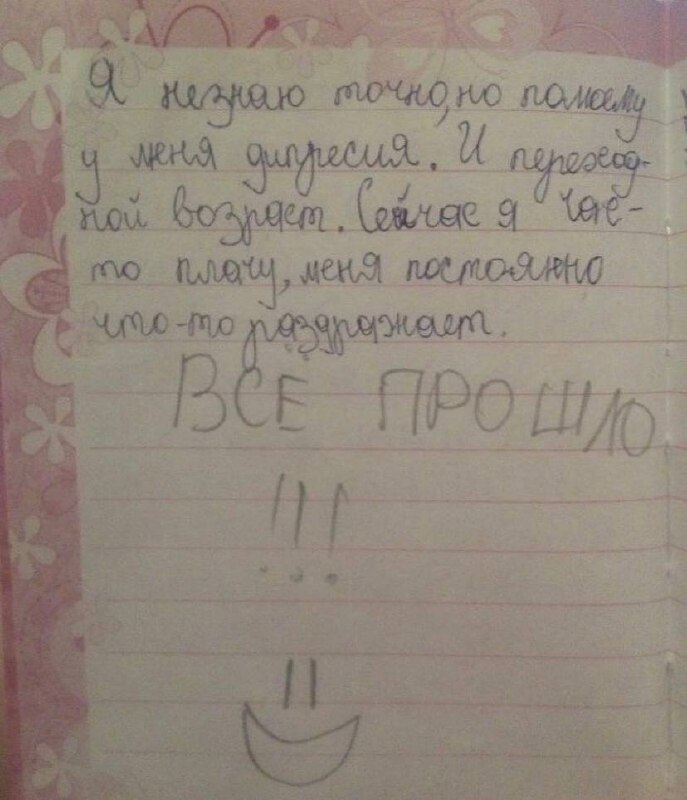 Я незнаю точно, но помоему
у меня дипресия. И переход-
ной возраст. Сейчас я час-
то плачу, меня постоянно
что-то раздражает.
ВСЁ ПРОШЛО
!!!